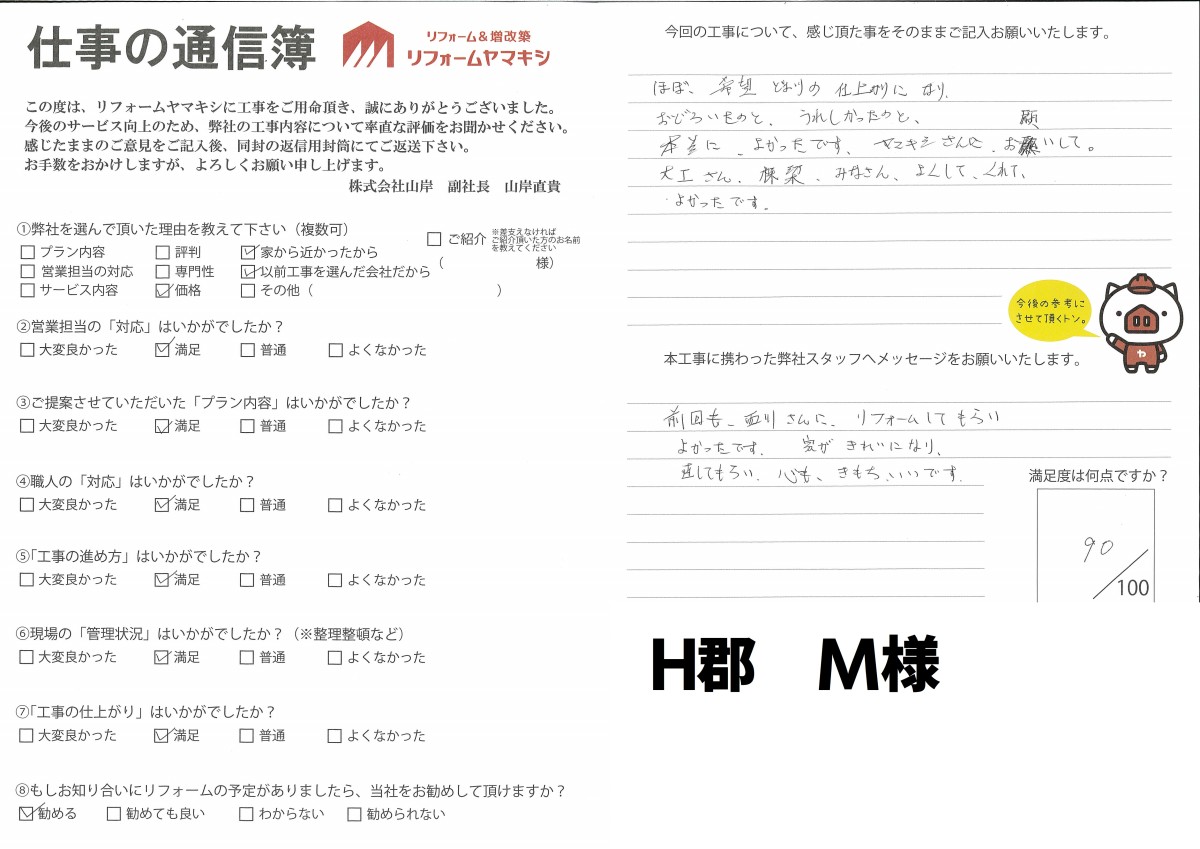 仕事の通信簿
リフォーム&増改築
リフォームヤマキシ
この度は、リフォームヤマキシに工事をご用命頂き、誠にありがとうございました。
今後のサービス向上のため、弊社の工事内容について率直な評価をお聞かせください。
感じたままのご意見をご記入後、同封の返信用封筒にてご返送下さい。
お手数をおかけしますが、よろしくお願い申し上げます。
株式会社山岸 副社長 山岸直貴
①弊社を選んで頂いた理由を教えて下さい（複数可）
□プラン内容 □評判 ☑家から近かったから □ご紹介 ※差支えなければ
ご紹介頂いた方のお名前
を教えてください
□営業担当の対応 □専門性 ☑以前工事を選んだ会社だから （ 様）
□サービス内容 ☑価格 □その他（ ）
②営業担当の「対応」はいかがでしたか？
□大変良かった ☑満足 □普通 □よくなかった
③ご提案させていただいた「プラン内容」はいかがでしたか？
□大変良かった ☑満足 □普通 □よくなかった
④職人の「対応」はいかがでしたか？
□大変良かった ☑満足 □普通 □よくなかった
⑤「工事の進め方」はいかがでしたか？
□大変良かった ☑満足 □普通 □よくなかった
⑥現場の「管理状況」はいかがでしたか？（※整理整頓など）
□大変良かった ☑満足 □普通 □よくなかった
⑦「工事の仕上がり」はいかがでしたか？
□大変良かった ☑満足 □普通 □よくなかった
⑧もしお知り合いにリフォームの予定がありましたら、当社をお勧めして頂けますか？
☑勧める □勧めても良い □わからない □勧められない
今回の工事について、感じ頂た事をそのままご記入お願いいたします。
ほぼ、希望 どおりの 仕上がりに なり、
おどろいたのと、うれしかったのと、 願
本当に、よかったです、ヤマキシさんに、お願いして。
大工さん、棟梁、みなさん、よくして、くれて、
よかったです。
今後の参考に
させて頂くトン。
ヤ
本工事に携わった弊社スタッフへメッセージをお願いいたします。
前回も、西川さんに、リフォームしてもらい
よかったです。 家が きれいになり、
直してもらい、心も、きもち、いいです。
満足度は何点ですか？
90
/100
H郡 M様